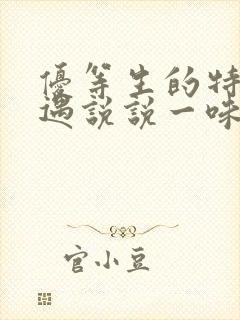 優等生的特
遇說說一味
官小豆